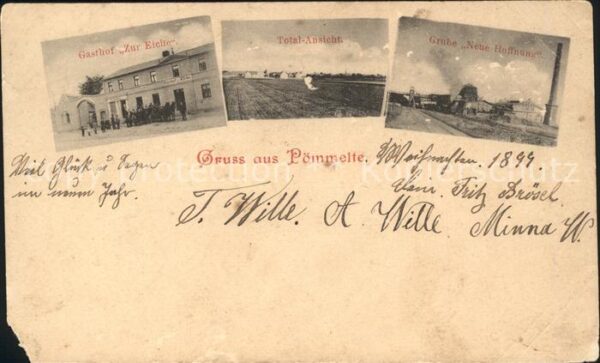 Gasthof „Zur Eiche“.
Total-Ansicht.
Grube „Neue Hoffnung“.
Gruss aus Pömmelte.
Weihnachten. 1899
Viel Glück u Segen
im neuen Jahr.
Fritz Brösel.
T. Wille. A Wille Minna W.